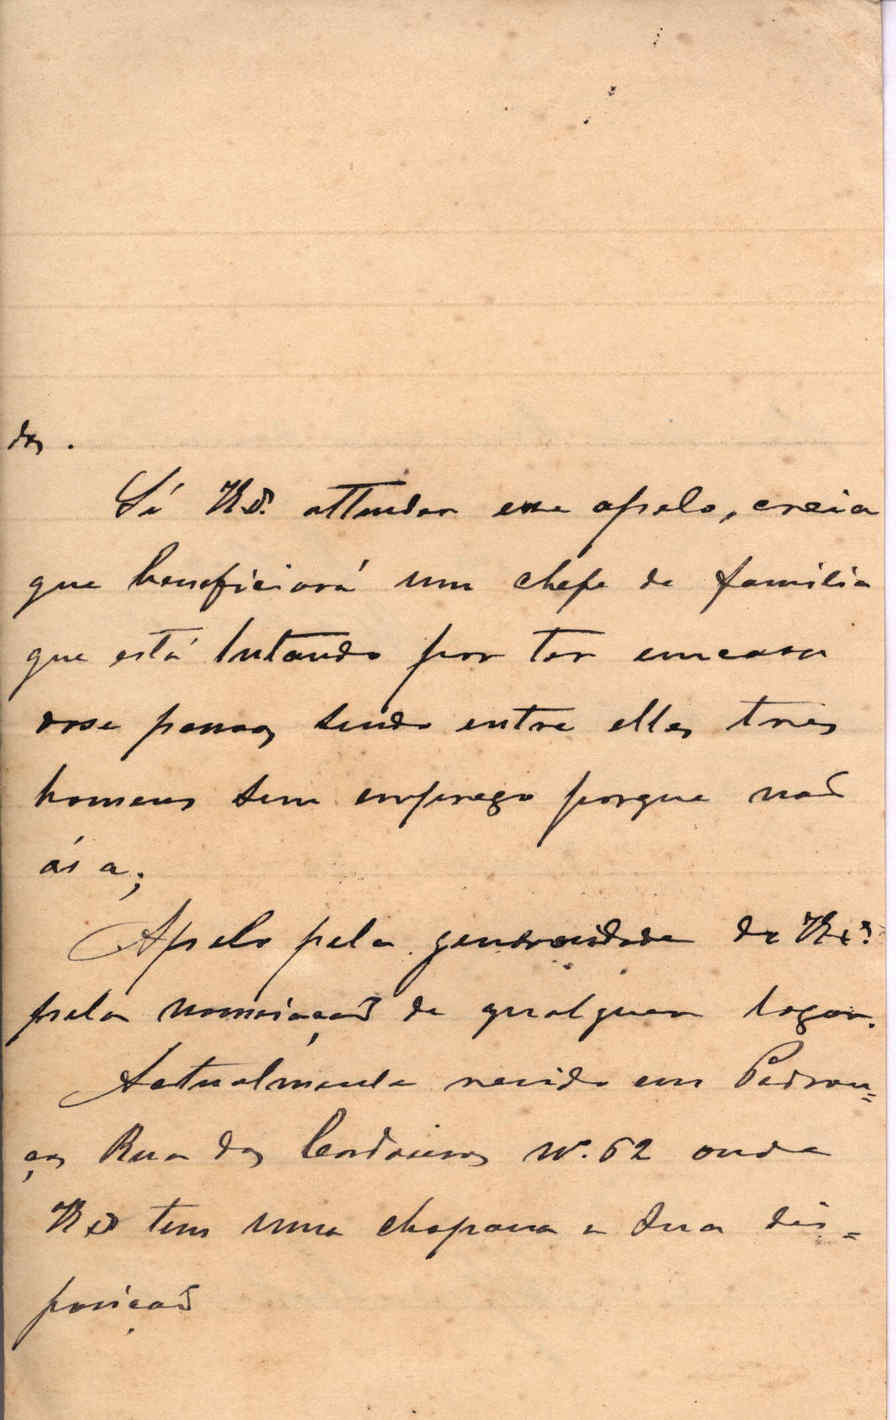 dos.
Si V Ex.ª attender esse apelo, creia
que beneficiará um chefe de familia
que está lutando por ter em casa
dose pessoas sendo entre elles tres
homens sem emprego porque não
ás a;
Apelo pela generosidade de V Ex.ª
pela nomeiação de qualquer logar.
Actualmente resido em Pedrou=
ços Rua dos Cordoeiros Nº. 62 onde
V Ex.ª tem uma chopana a sua dis=
posição